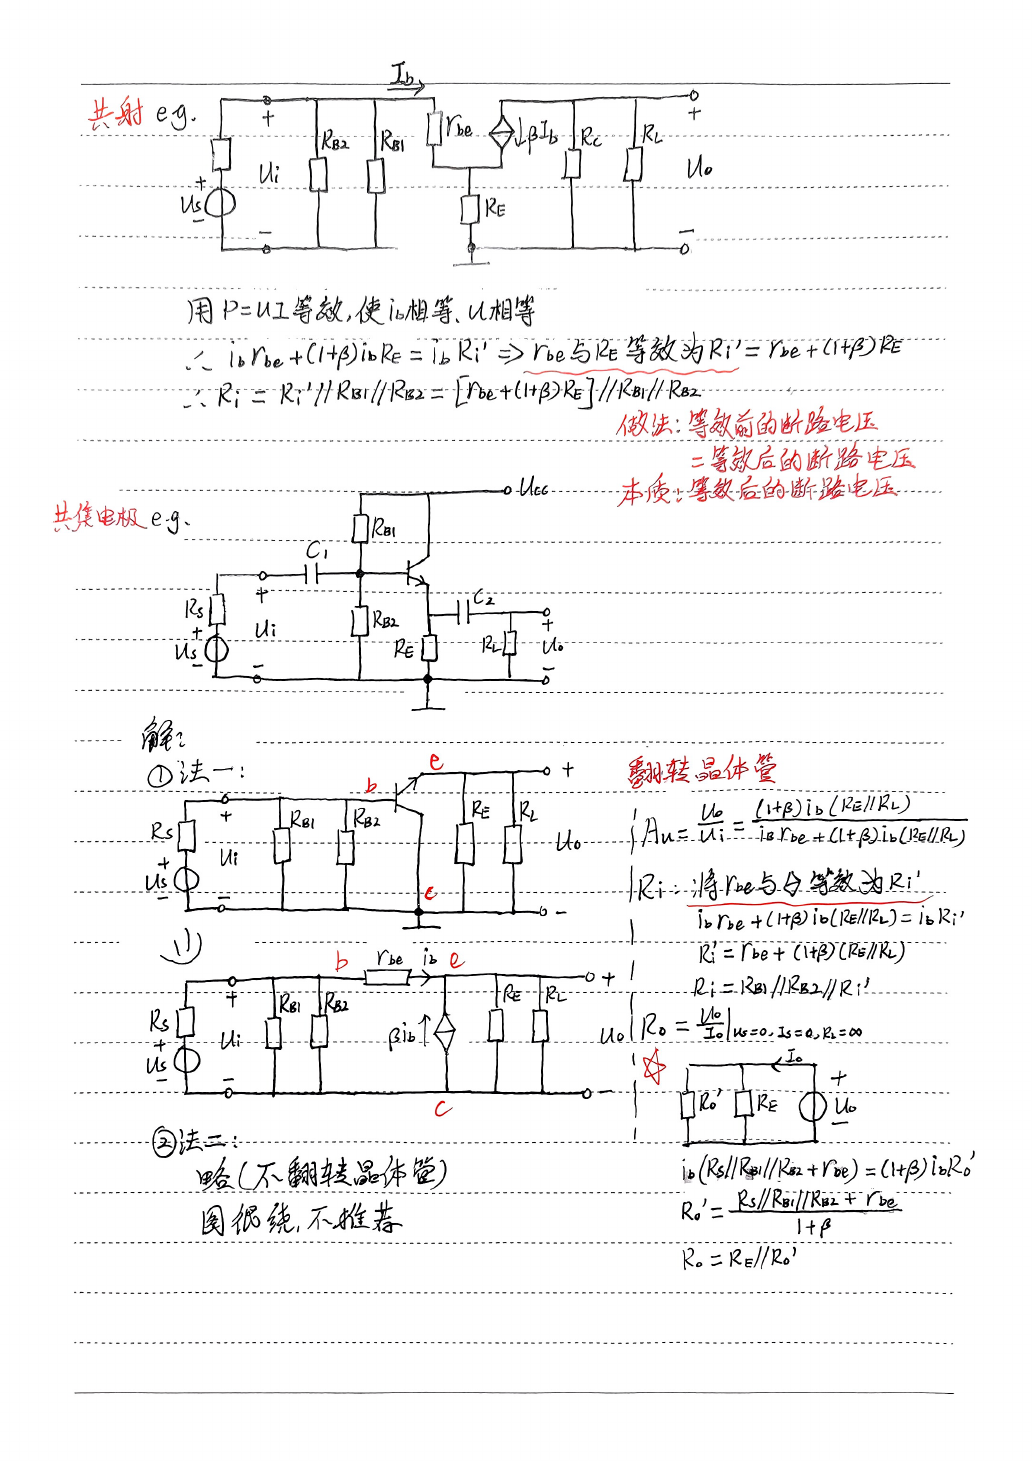 共射 e.g.
Ib
Us
Ui
RB2
RB1
rbe
βIb
RC
RL
RE
Uo
用P=UI等效,使ib相等、U相等
∴ ibrbe+(1+β)ibRE=ibRi' ⇒ rbe与RE等效为Ri'=rbe+(1+β)RE
∴ Ri=Ri'//RB1//RB2=[rbe+(1+β)RE]//RB1//RB2
做法:等效前的断路电压
=等效后的断路电压
本质:等效后的断路电压
共集电极 e.g.
UCC
RB1
C1
RS
Us
Ui
RB2
C2
RE
RL
Uo
解:
①法一:
b
e
c
RS
Us
Ui
RB1
RB2
RE
RL
Uo
b
rbe
ib
e
RS
Us
Ui
RB1
RB2
βib
RE
RL
Uo
c
②法二:
略(不翻转晶体管)
图很绕,不推荐
翻转晶体管
Au=Uo/Ui=(1+β)ib(RE//RL)/ibrbe+(1+β)ib(RE//RL)
Ri:将rbe与 等效为Ri'
ibrbe+(1+β)ib(RE//RL)=ibRi'
Ri'=rbe+(1+β)(RE//RL)
Ri=RB1//RB2//Ri'
Ro=Uo/Io|Us=0,Is=0,RL=∞
Io
Ro'
RE
Uo
ib(RS//RB1//RB2+rbe)=(1+β)ibRo'
Ro'=RS//RB1//RB2+rbe/1+β
Ro=RE//Ro'